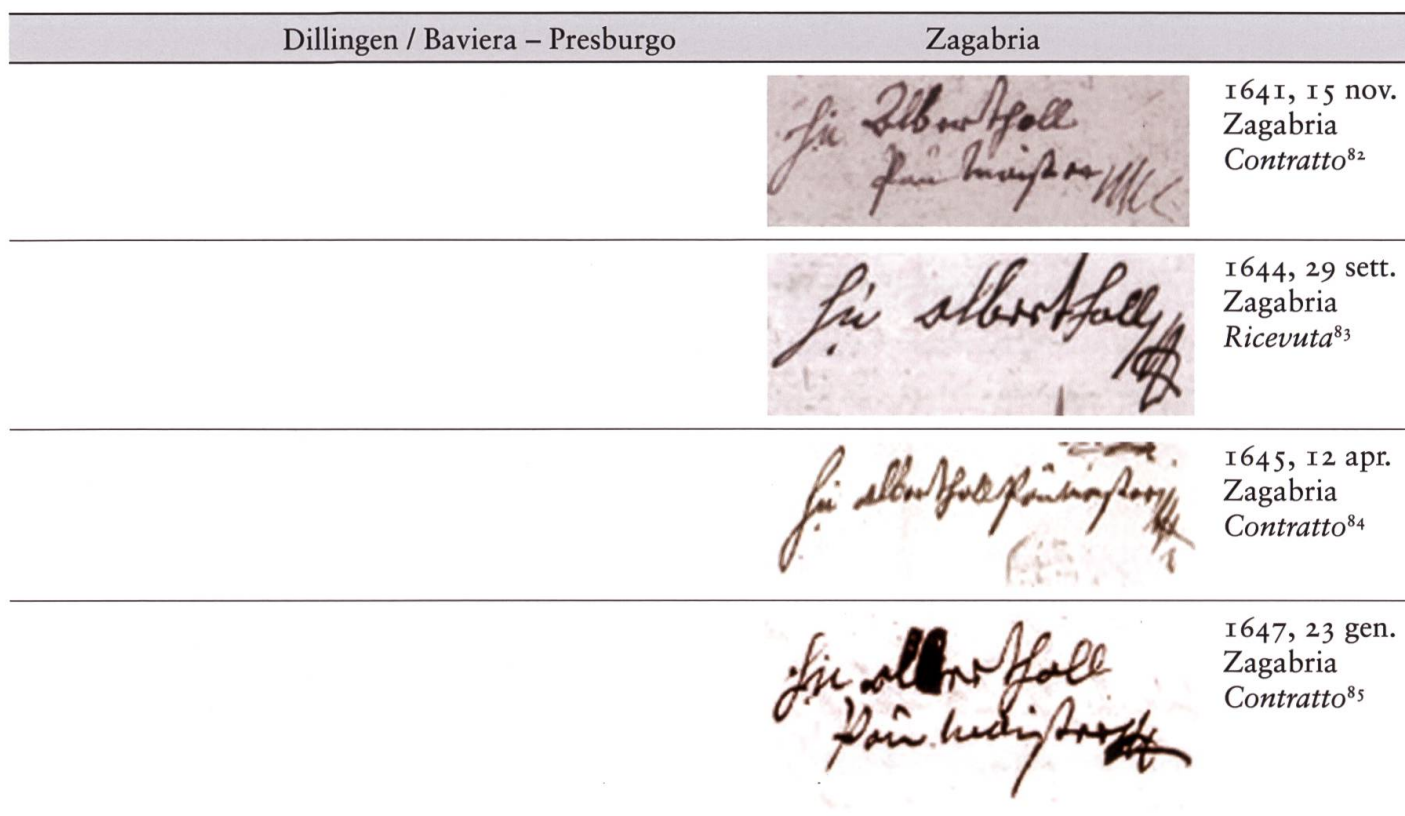 Dillingen / Baviera – Presburgo Zagabria
Alberthall
1641, 15 nov.
Zagabria
Contratto⁸²
alberthall
1644, 29 sett.
Zagabria
Ricevuta⁸³
alberthall
1645, 12 apr.
Zagabria
Contratto⁸⁴
alberthall
1647, 23 gen.
Zagabria
Contratto⁸⁵